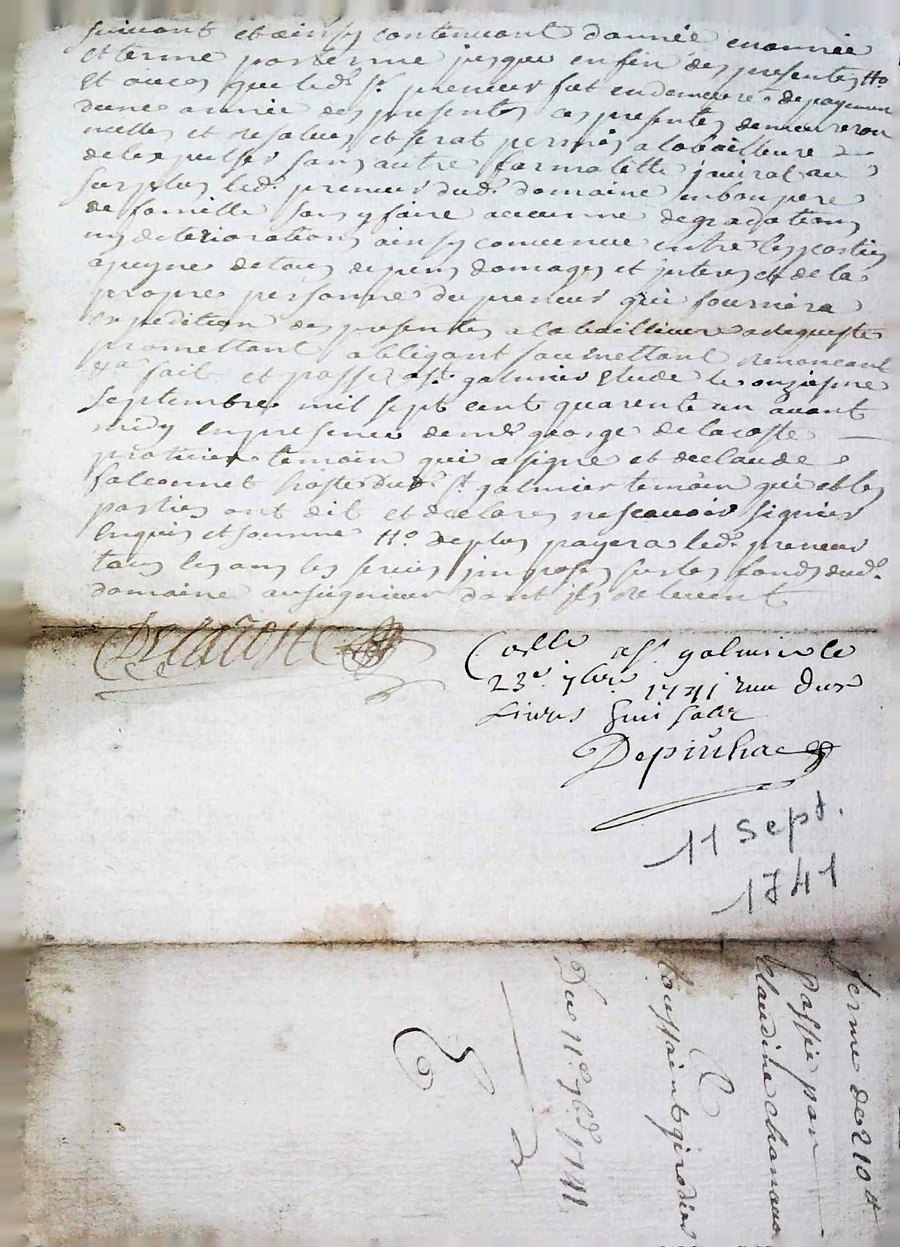 suivant et ainsy continuant d'année en année
et terme par terme jusques enfin des presentes Ho.
et au cas que led. sr. preneur fut en demeure de payement
dune année des presentes ces presentes demeureron
nulles et resolues et serat permis a la bailleure
de lexpulser sans autre formalitté jouirat au
surplus led. preneur dud. domaine en bon pere
de famille sans y faire aucunne degradations
ny deteriorations ainsy convenue entre les parties
a peyne de tous depens domages et interes et de la
propre personne du preneur qui fournira
expedition des presentes a la bailleure a de
promettant obligant soumettant renonceant
fait et passé a St. galmier etude le onziesme
septembre mil sept cent quarente un avant
midy en presence de me george delacoste
praticien temoin qui a signé et de claude
falconnet hoste dud. St. galmier temoin qui et les
parties ont dit et declarés ne scavoir signier
enquis et sommé Ho. de plus payera led. preneur
tous les ans les servis imposés sur les fonds dud.
domaine au seigneur dont ils relevent
Delacoste
Colle a St. galmier le
23e. 7bre 1741 reçu
Livres huit solz
Depinhac
11 Sept.
1741
ferme de 210 #
passée par
Claudine
toussaint girodier
Du 11e. 7bre. 1741